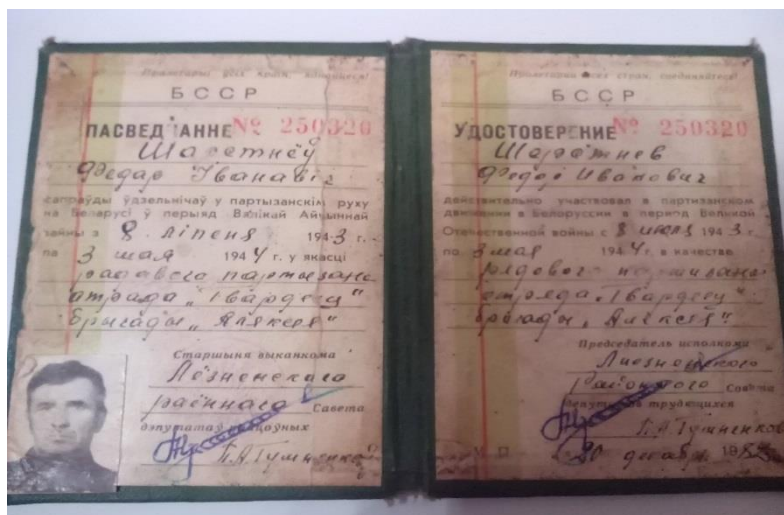 Пролетарыі ўсіх краін, яднайцеся!
БССР
ПАСВЕДЧАННЕ № 250320
Федар Іванавіч
сапраўды ўдзельнічаў у партызанскім руху
на Беларусі ў перыяд Вялікай Айчыннай
вайны з 8 ліпеня 1943 г.
па 3 мая 1944 г. у якасці
радавога партызана
атрада „Гвардеец“
брыгады „Аляксея“
Старшыня выканкома
Лёзненскага
раённага Савета
дэпутатаў працоўных
Пролетарии всех стран, соединяйтесь!
БССР
УДОСТОВЕРЕНИЕ № 250320
Федор Иванович
действительно участвовал в партизанском
движении в Белоруссии в период Великой
Отечественной войны с 8 июля 1943 г.
по 3 мая 1944 г. в качестве
рядового партизана
отряда „Гвардеец“
бригады „Алексея“
Председатель исполкома
Лиозненского
районного Совета
депутатов трудящихся
М. П. 20 декабря